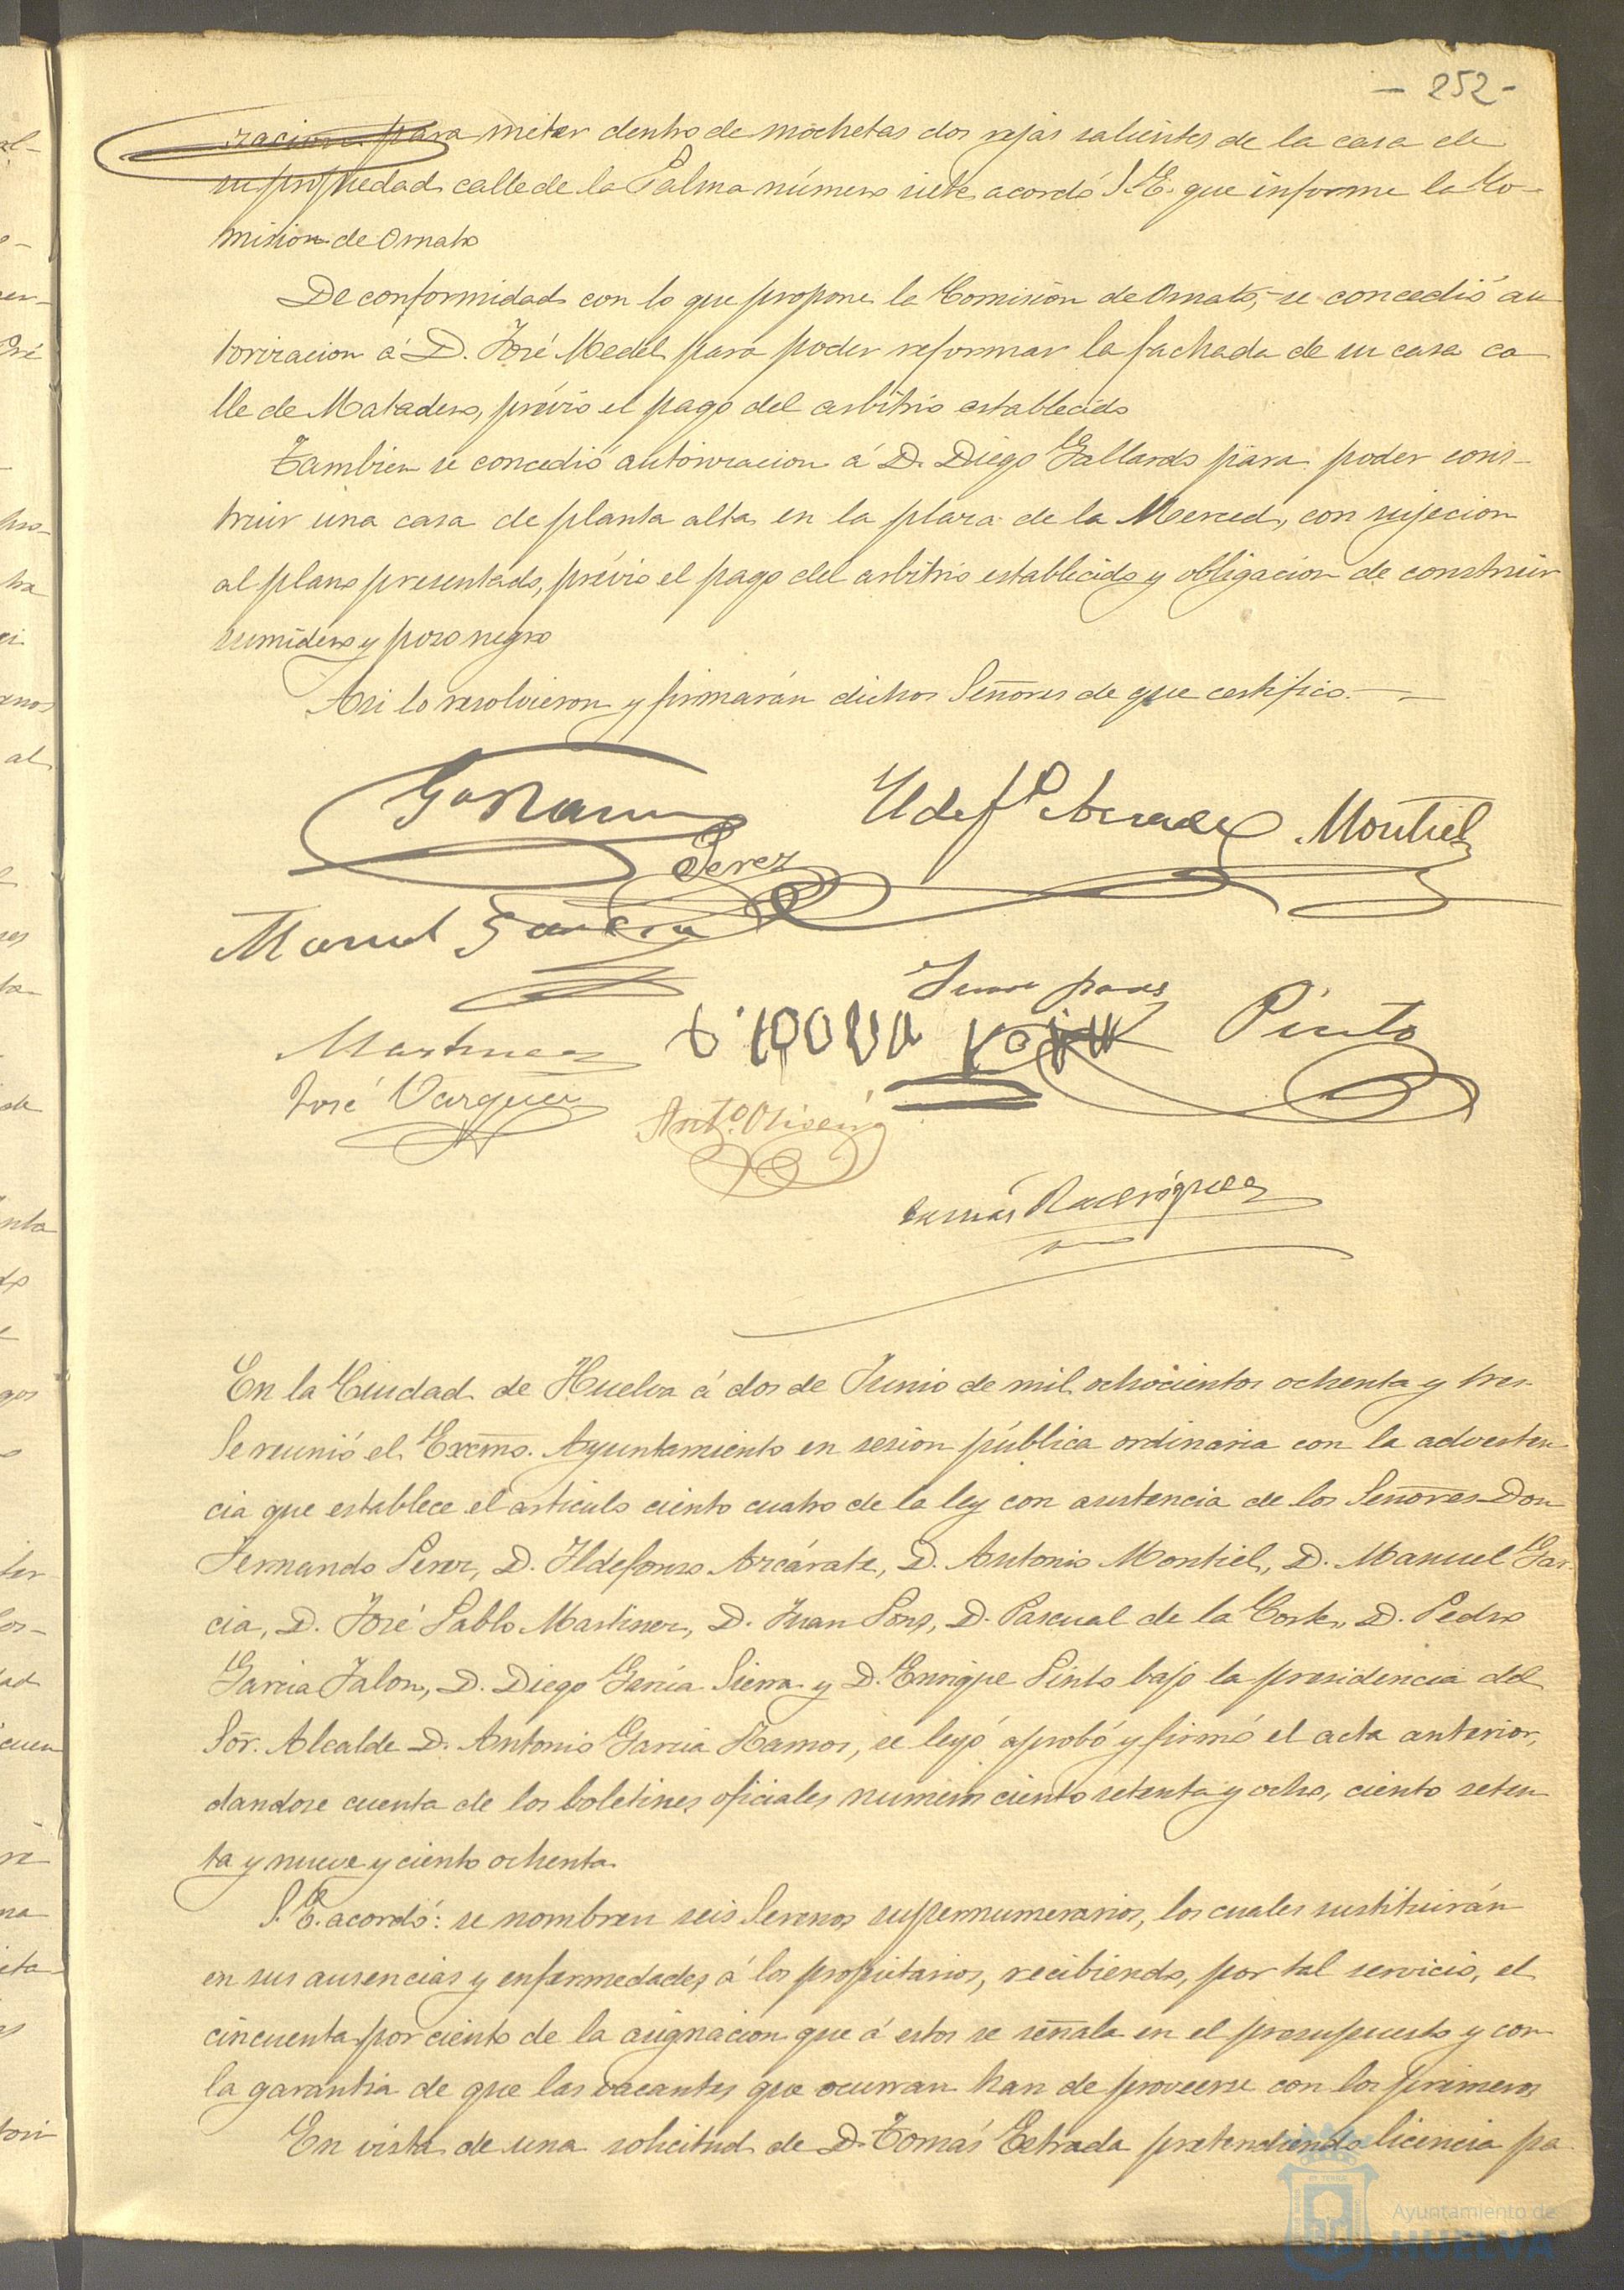 - 252 -
racion para meter dentro de mochetas dos rejas salientes de la casa de
su propiedad calle de la Palma número siete acordó S.E. que informe la Co-
mision de Ornato
De conformidad con lo que propone la Comision de Ornato, se concedió au
torizacion á D. José Medel para poder reformar la fachada de su casa ca
lle de Matadero, prévio el pago del arbitrio establecido
Tambien se concedió autorizacion á D. Diego Gallardo para poder cons-
truir una casa de planta alta en la plaza de la Merced, con sujecion
al plano presentado, prévio el pago del arbitrio establecido y obligacion de construir
sumidero y pozo negro
Asi lo resolvieron y firmarán dichos Señores de que certifico.
Ga Ramos
Ildef.º Azcarate
Montiel
Perez
Manuel Garcia
Juan pons
Pinto
Martinez
José Vazquez
Ant.º Oliveira
Tomás Rodríguez
En la Ciudad de Huelva á dos de Junio de mil ochocientos ochenta y tres
Se reunió el Excmo. Ayuntamiento en sesion pública ordinaria con la adverten
cia que establece el articulo ciento cuatro de la ley con asistencia de los Señores Don
Fernando Perez, D. Ildefonso Azcárate, D. Antonio Montiel, D. Manuel Gar-
cia, D. José Pablo Martinez, D. Juan Pons, D. Pascual de la Corte, D. Pedro
Garcia Jalon, D. Diego Garcia Sierra y D. Enrique Pinto bajo la presidencia del
Sor. Alcalde D. Antonio Garcia Ramos, se leyó aprobó y firmó el acta anterior,
dandose cuenta de los boletines oficiales numeros ciento setenta y ocho, ciento seten
ta y nueve y ciento ochenta.
S.E. acordó: se nombren seis Serenos supernumerarios, los cuales sustituirán
en sus ausencias y enfermedades, á los propietarios, recibiendo, por tal servicio, el
cincuenta por ciento de la asignacion que á estos se señala en el presupuesto y con
la garantia de que las vacantes que ocurran han de proveerse con los primeros
En vista de una solicitud de D. Tomás Estrada pretendiendo licencia pa
Ayuntamiento de
HUELVA